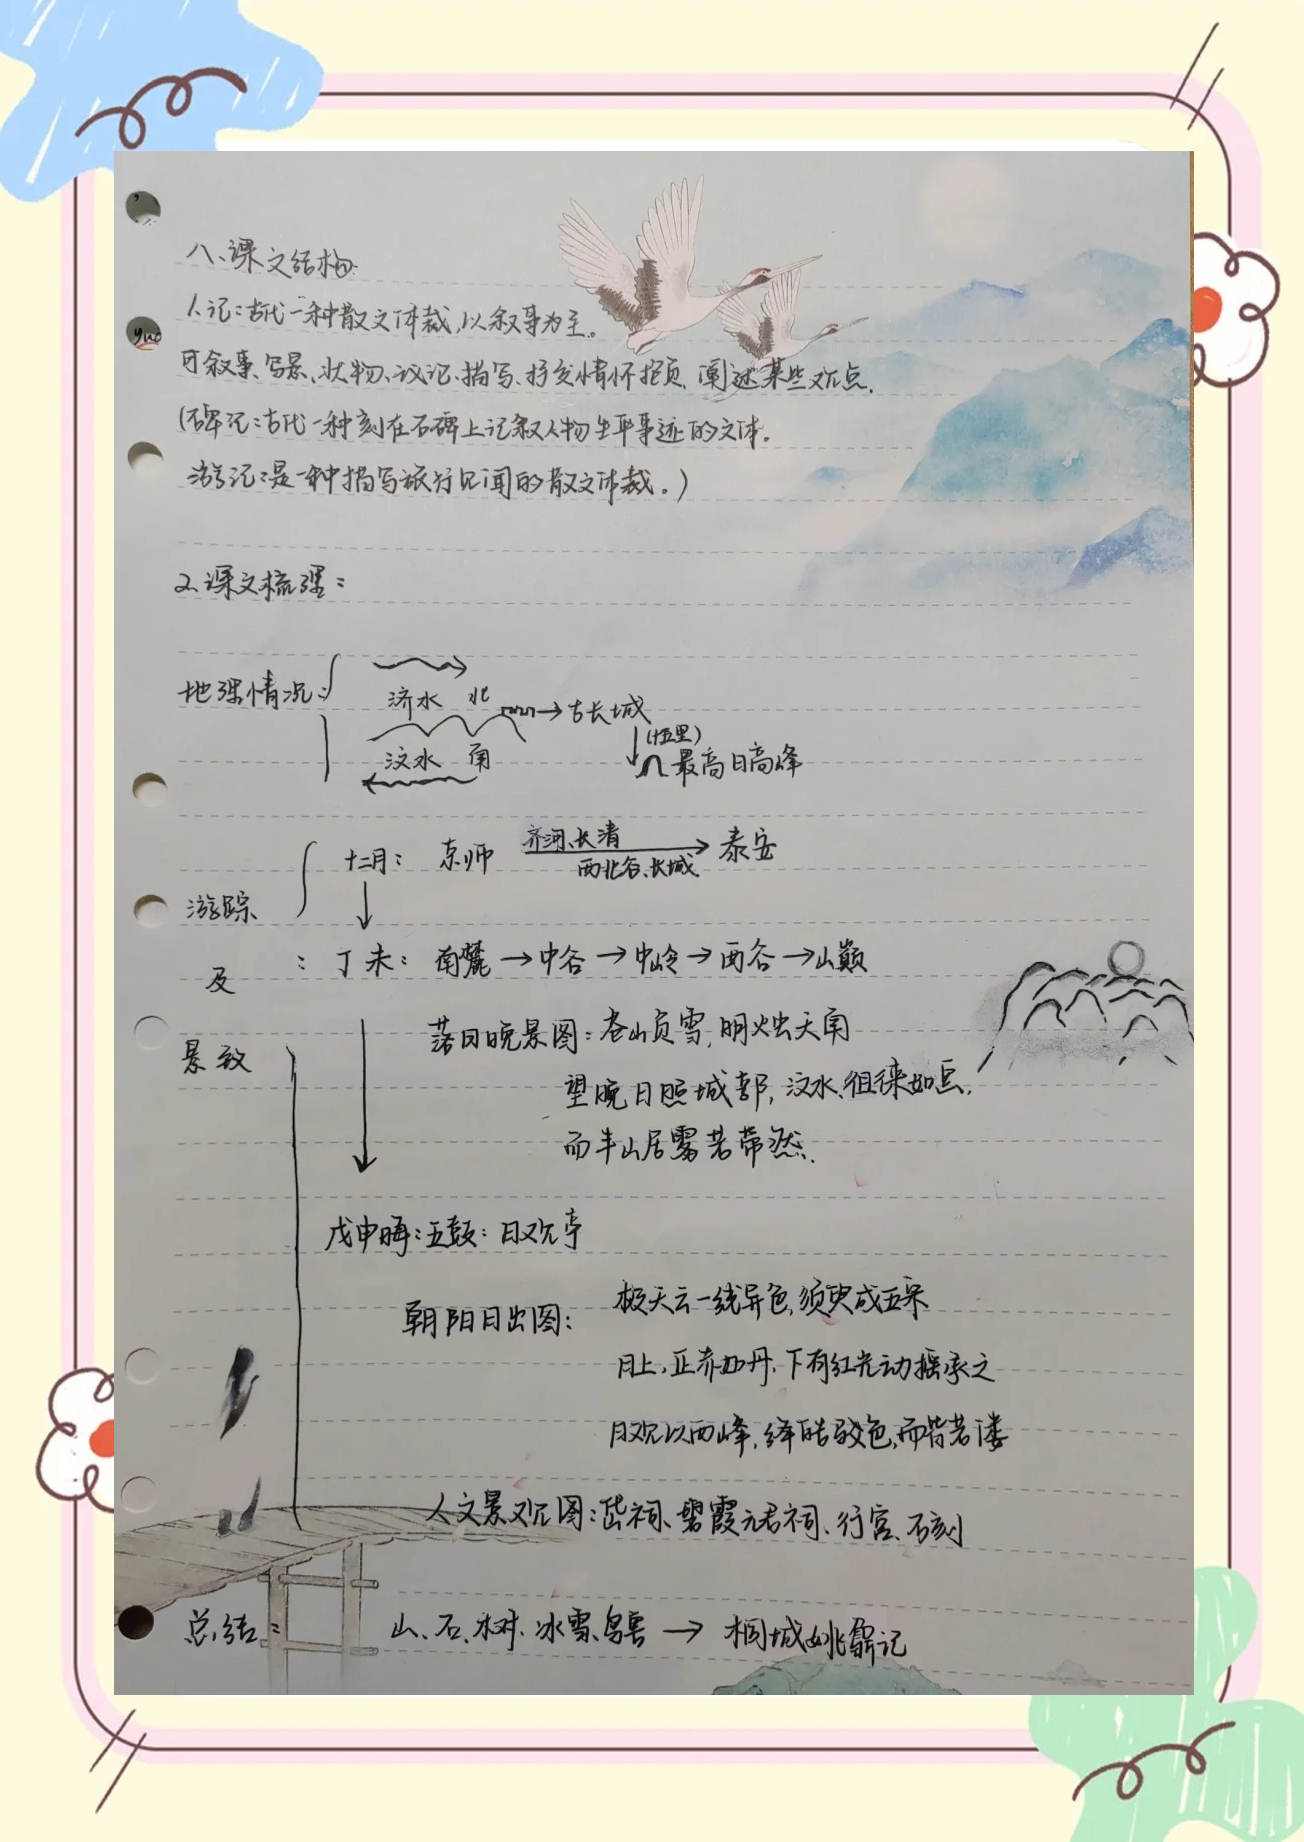 八、课文结构:
1、记:古代一种散文体裁,以叙事为主。
可叙事、写景、状物、议论、描写、抒发情怀抱负、阐述某些观点.
(碑记:古代一种刻在石碑上记叙人物生平事迹的文体.
游记:是一种描写旅行见闻的散文体裁。)
2.课文梳理:
地理情况:
济水 北
→古长城
(十五里)
汶水 南
最高日高峰
十二月: 京师 齐河、长清 → 泰安
西北谷、长城
游踪
及
景致
: 丁未: 南麓→中谷→中岭→西谷→山巅
落日晚景图:苍山负雪,明烛天南
望晚日照城郭,汶水、徂徕如画.
而半山居雾若带然.
戊申晦:五鼓:日观亭
朝阳日出图:
极天云一线异色,须臾成五采
日上,正赤如丹,下有红光动摇承之
日观以西峰,绛皓驳色,而皆若偻
人文景观图:岱祠、碧霞元君祠、行宫、石刻
总结: 山、石、树、冰雪、鸟兽 → 桐城姚鼐记
yue